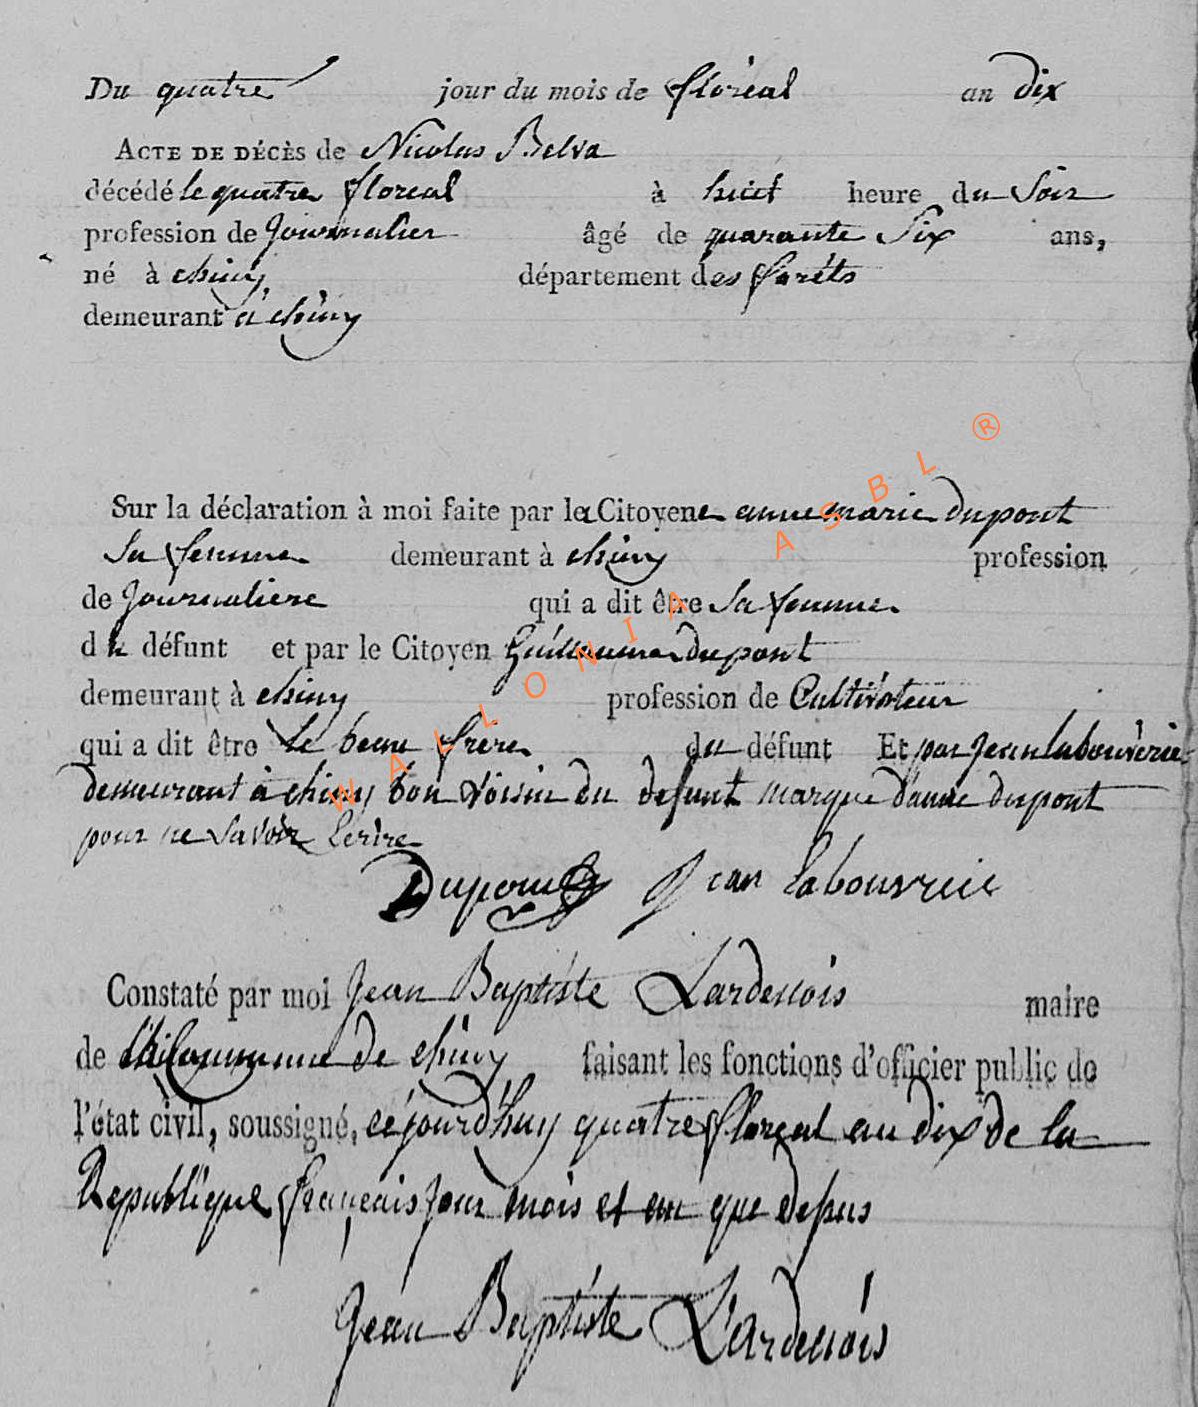 Du quatre jour du mois de floréal an dix
ACTE DE DÉCÈS de Nicolas Belva
décédé le quatre floreal à huit heure du Soir
profession de Journalier âgé de quarante Six ans,
né à chiny département des forêts
demeurant à chiny
Sur la déclaration à moi faite par lea Citoyene anne marie dupont
Sa femme demeurant à chiny profession
de Journaliere qui a dit être Sa femme
du défunt et par le Citoyen Guillaume dupont
demeurant à chiny profession de Cultivateur
qui a dit être le beau frere du défunt Et par Jean labouverie
demeurant à chiny bon voisin du defunt marque d'anne dupont
pour ne Savoir Ecrire
Dupont Jean labouvrie
Constaté par moi Jean Baptiste Lardenois maire
de la Commune de chiny faisant les fonctions d'officier public de
l'état civil, soussigné, cejourd'huy quatre floreal an dix de la
Republique français Jour mois et an que depus
Jean Baptiste Lardenois
WALLONIA ASBL ®